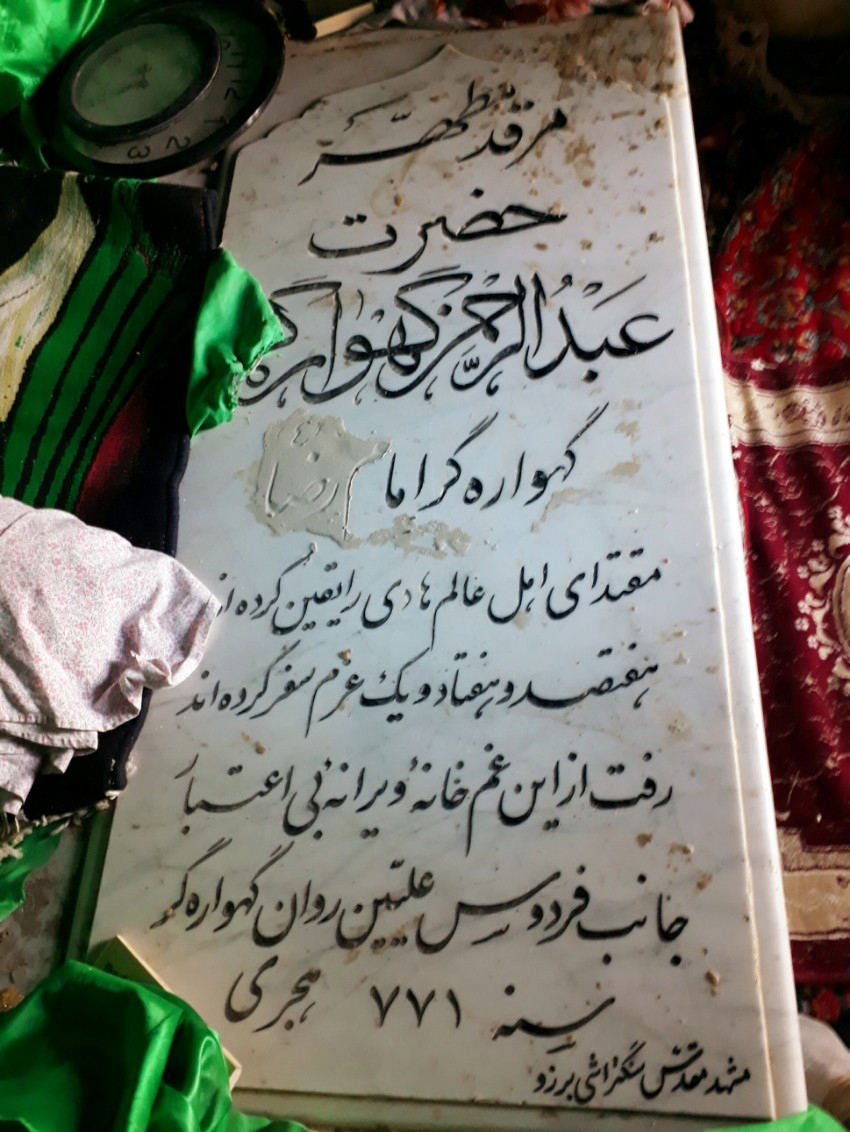 مرقد مطهّر
حضرت
عَبدُالرّحمن گهواره
گهواره گر امام رضا
مقتدای اهل عالم هادی راه یقین کرده از
هفتصد و هفتاد و یک عزم سفر کرده اند
رفت از این غم خانهٔ ویرانهٔ بی اعتبار
جانب فردوس علّیین روان گهواره گر
سنه ۷۷۱ هجری
مشهد مقدس سنگتراشی برزو